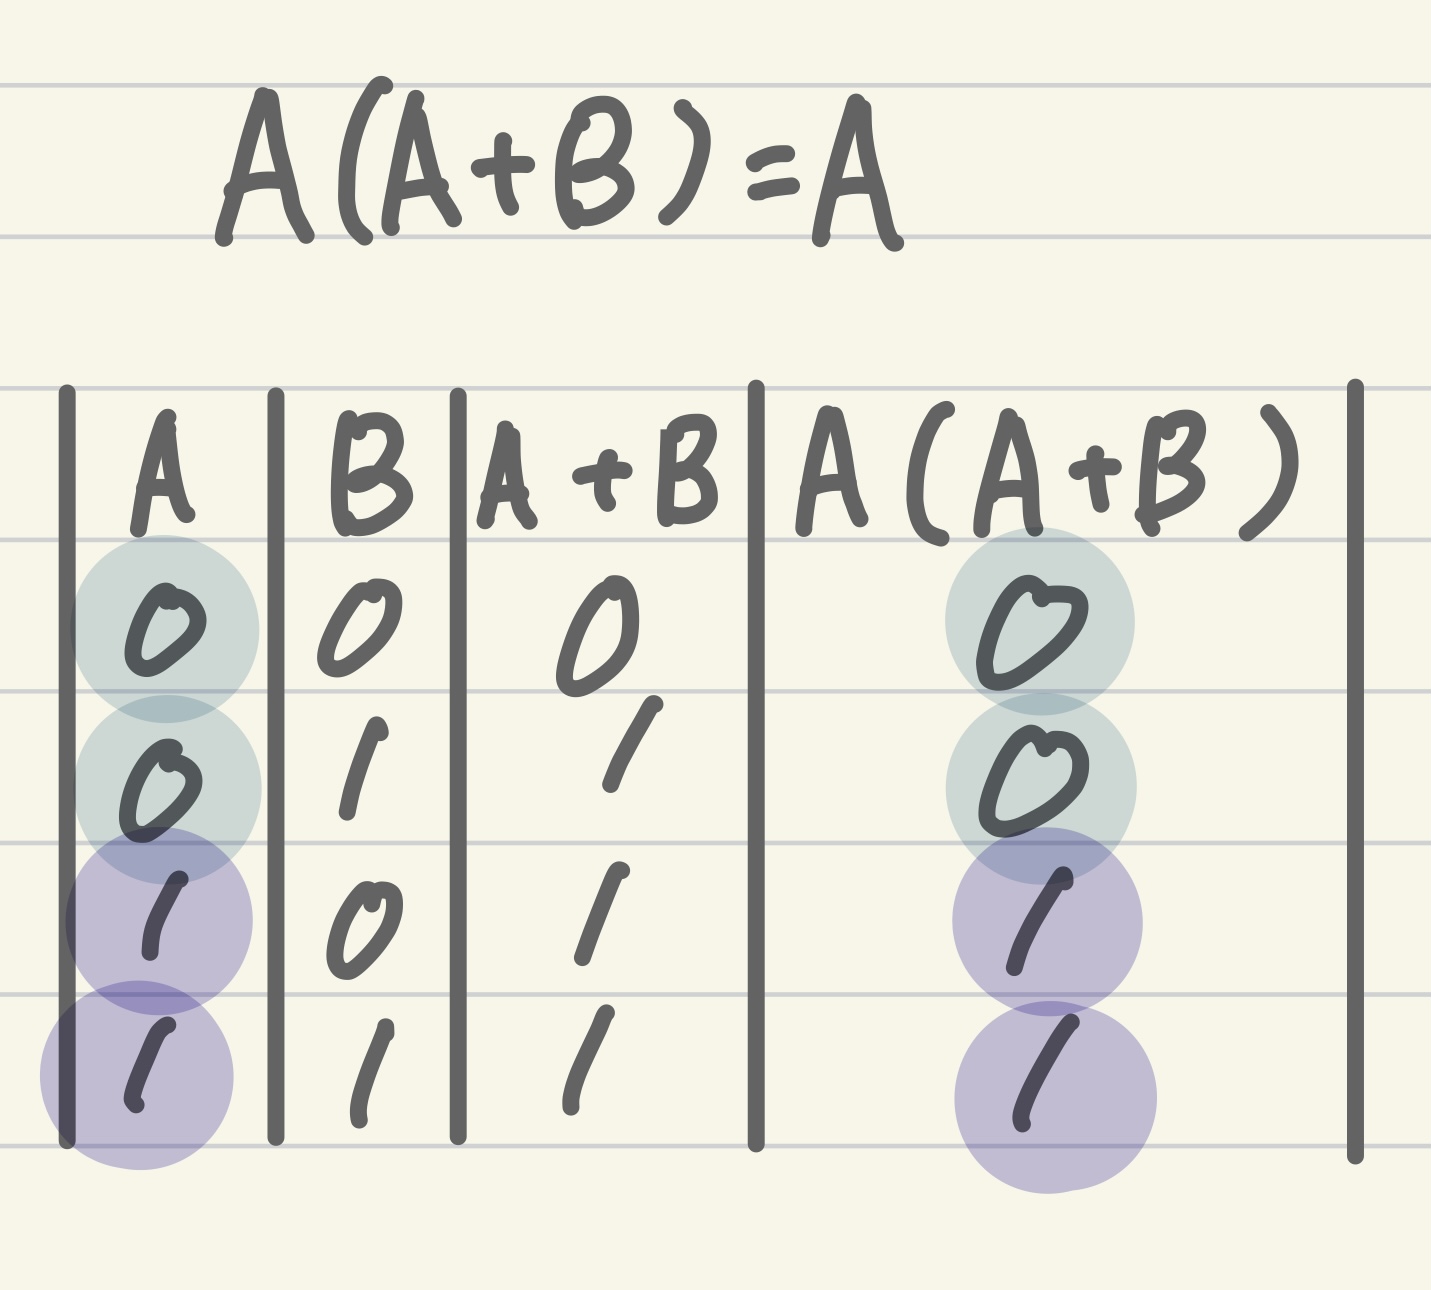 A(A+B)=A
A B A+B A(A+B)
0 0 0 0
0 1 1 0
1 0 1 1
1 1 1 1